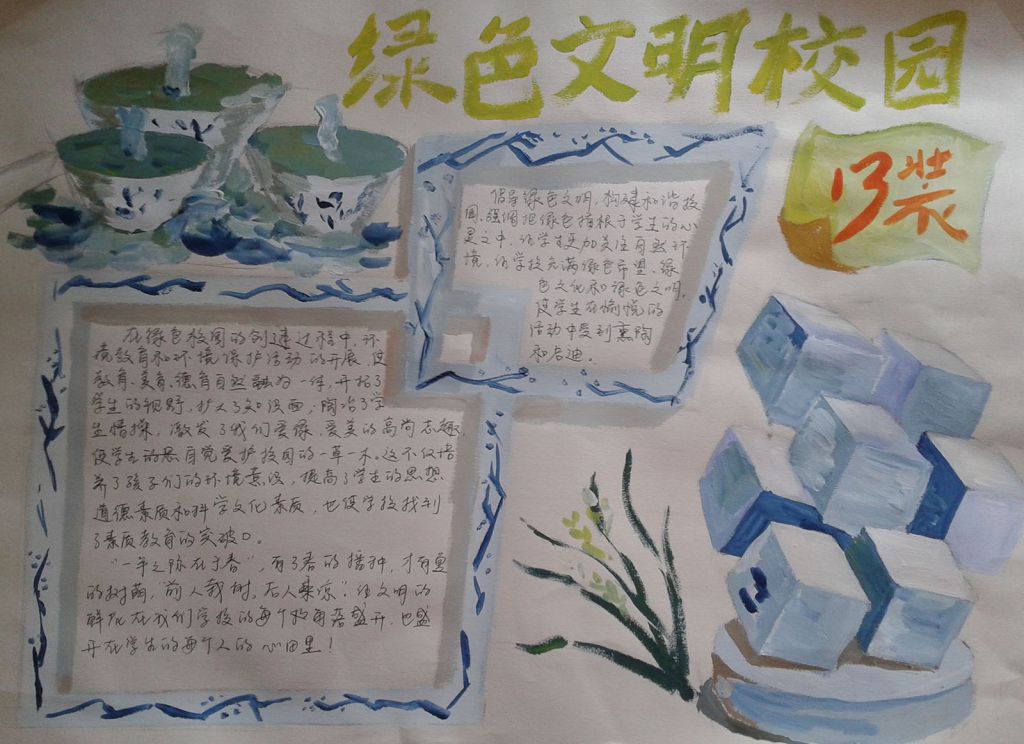 绿色文明校园
13装
倡导绿色文明，构建和谐校
园，强调把绿色植根于学生的心
灵之中，让学生更加关注自然环
境，让学校充满绿色希望、绿
色文化和绿色文明，
使学生在愉悦的
活动中受到熏陶
和启迪。
在绿色校园的创建过程中，环
境教育和环境保护活动的开展，使
教育、美育、德育自然融为一体，开拓了
学生的视野，扩大了知识面，陶冶了学
生情操，激发了我们爱绿、爱美的高尚志趣，
使学生的悉自觉爱护校园的一草一木。这不仅培
养了孩子们的环境意识，提高了学生的思想
道德素质和科学文化素质，也使学校找到
了素质教育的突破口。
“一年之际在于春”，有了春的播种，才有夏
的树荫，“前人栽树，后人乘凉”。让文明的
鲜花在我们学校的每个角落盛开，也盛
开在学生的每个人的心田里！